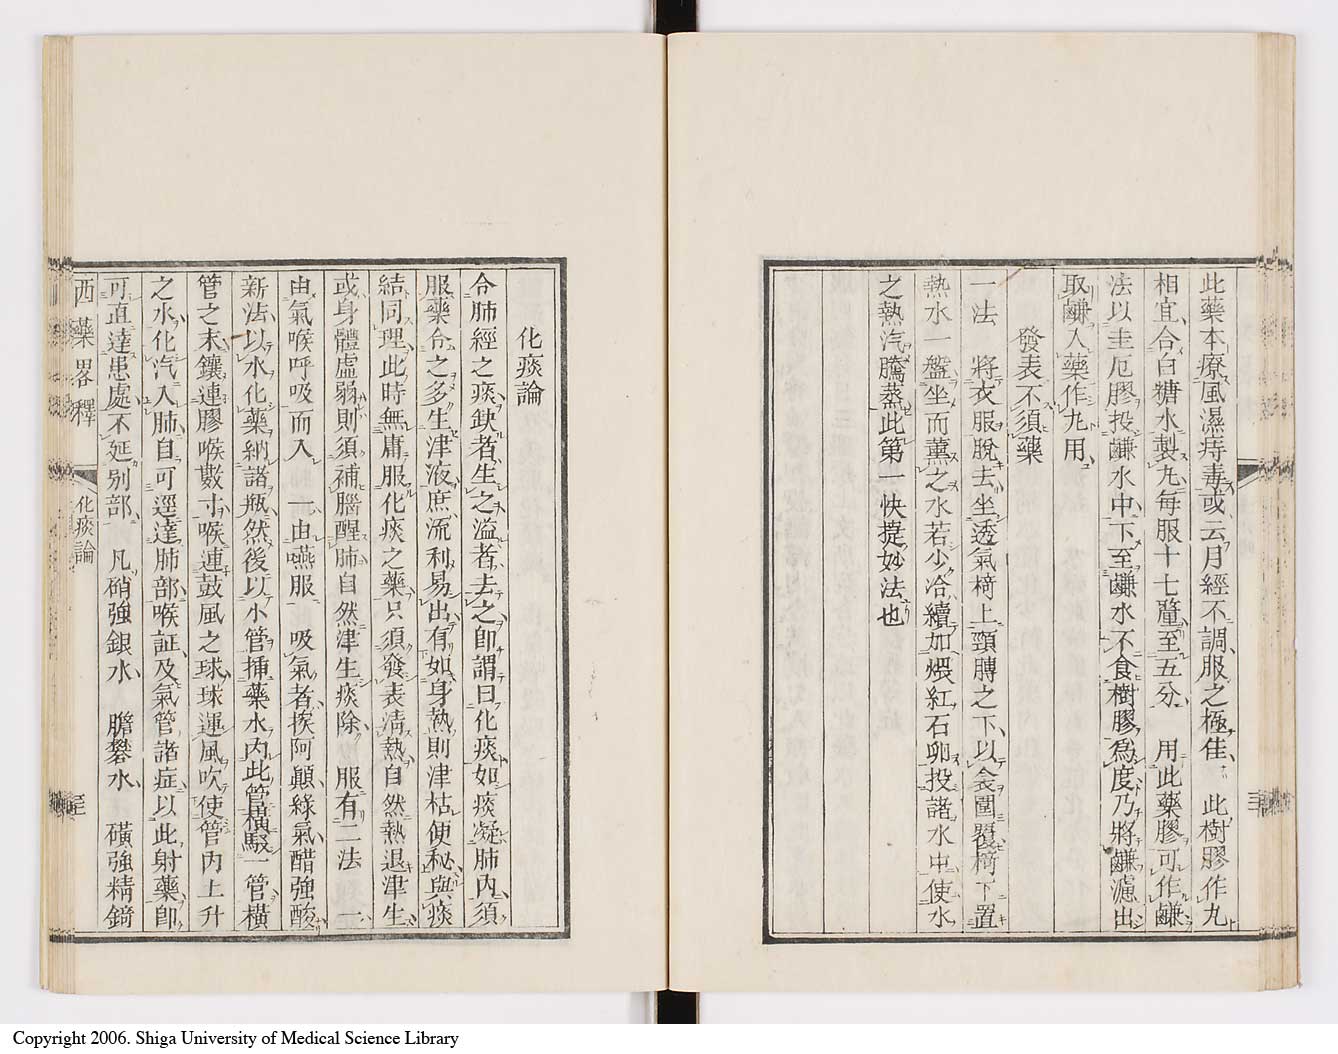 此藥本療風濕痔毒或云月經不調服之極佳 此樹膠作丸
相宜合白糖水製丸每服十七釐至五分 用此藥膠可作鹻
法以圭厄膠投鹻水中下至鹻水不食樹膠爲度乃將鹻濾出
取鹻入藥作丸用
發表不須藥
一法 將衣服脫去坐透氣椅上頸膊之下以衾圍覆椅下置
熱水一盤坐而薰之水若少冷續加煨紅石卵投諸水中使水
之熱汽騰蒸此第一快捷妙法也
化痰論
合肺經之痰鈌者生之溢者去之卽謂曰化痰如痰凝肺內須
服藥合之多生津液庶流利易出有如身熱則津枯便秘與痰
結同理此時無庸服化痰之藥只須發表淸熱自然熱退津生
或身體虛弱則須補腦醒肺自然津生痰除 服有二法 一
由氣喉呼吸而入 一由嚥服 吸氣者挨阿顛綠氣醋強酸
新法以水化藥納諸瓶然後以小管插藥水內此管橫駁一管橫
管之末鑲連膠喉數寸喉連鼓風之球球運風吹使管內上升
之水化汽入肺自可逕達肺部喉証及氣管諸症以此射藥卽
可直達患處不延別部 凡硝強銀水 膽礬水 磺強精錡
西藥畧釋
化痰論